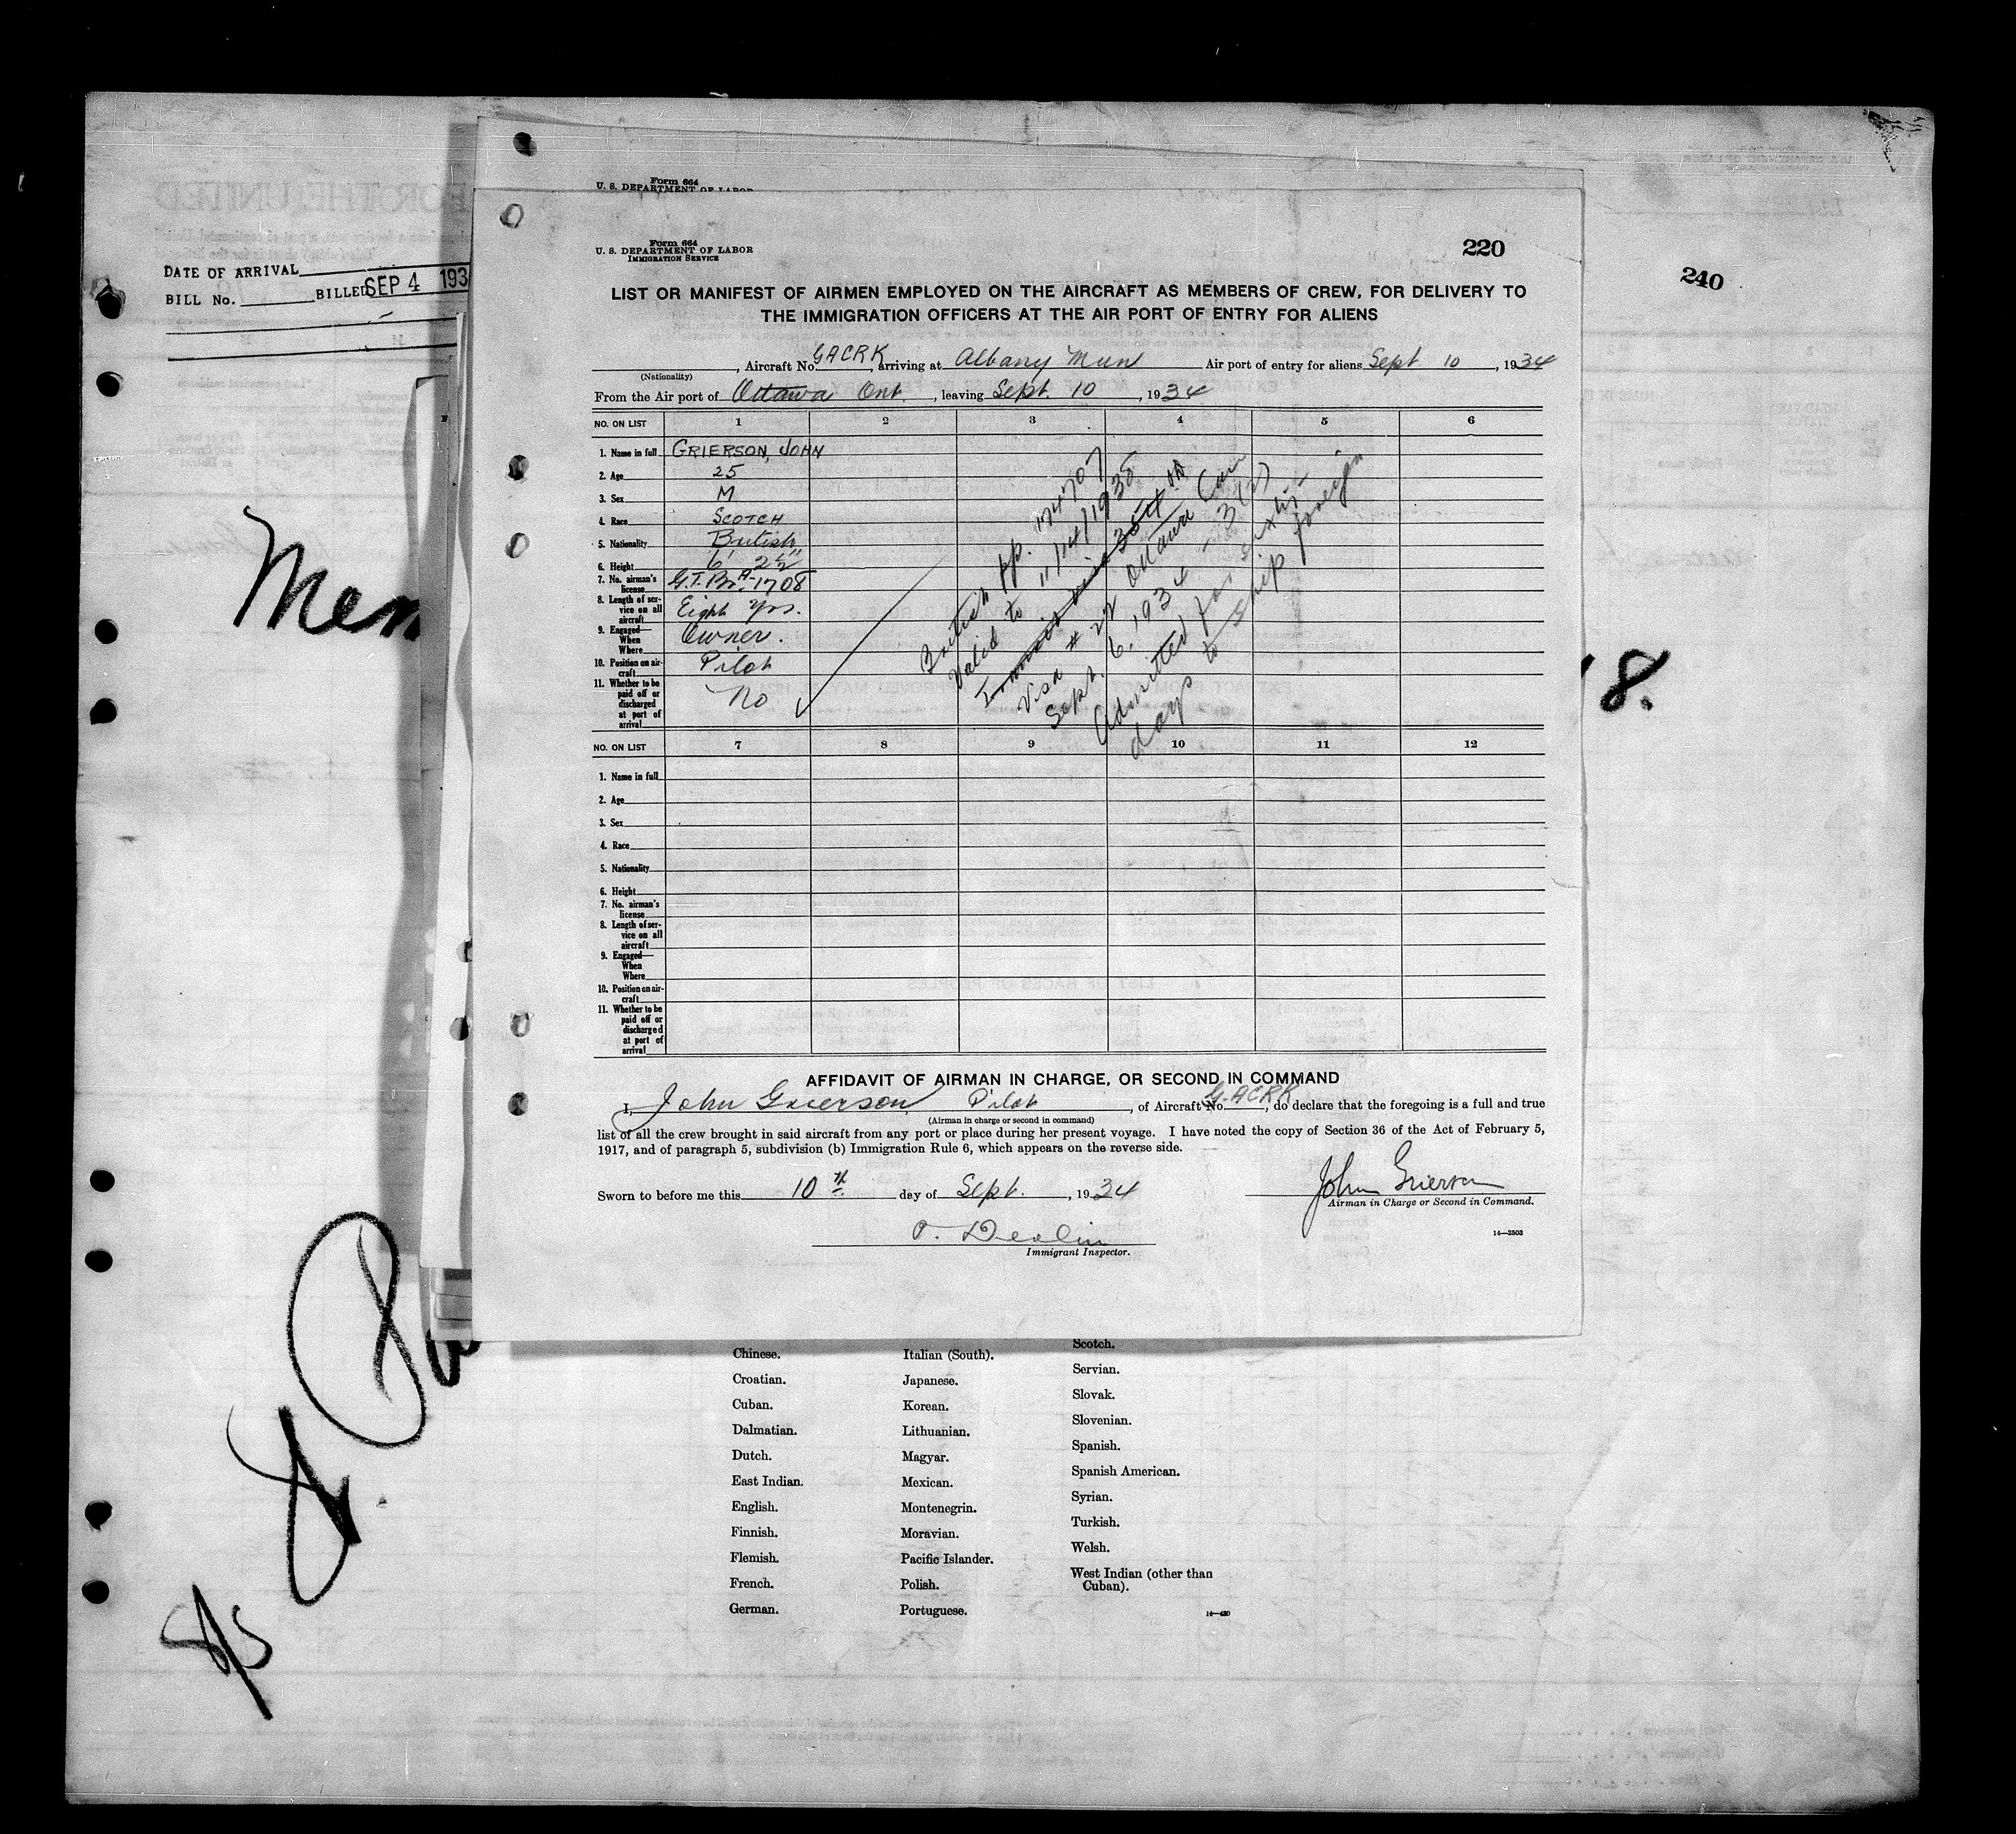 DATE OF ARRIVAL
BILL No. BILLED SEP 4 193
Form 664
U. S. DEPARTMENT OF LABOR
Form 664
U. S. DEPARTMENT OF LABOR
IMMIGRATION SERVICE
220
240
LIST OR MANIFEST OF AIRMEN EMPLOYED ON THE AIRCRAFT AS MEMBERS OF CREW, FOR DELIVERY TO
THE IMMIGRATION OFFICERS AT THE AIR PORT OF ENTRY FOR ALIENS
, Aircraft No. GACRK, arriving at Albany Mun Air port of entry for aliens Sept 10, 1934
(Nationality)
From the Air port of Ottawa Ont., leaving Sept. 10, 1934
NO. ON LIST 1 2 3 4 5 6
1. Name in full GRIERSON, JOHN
2. Age 25
3. Sex M
4. Race SCOTCH
5. Nationality British
6. Height 6' 2½"
7. No. airman's license G.T.Br.A-1708
8. Length of service on all aircraft Eight yrs.
9. Engaged— When Where Owner.
10. Position on aircraft Pilot
11. Whether to be paid off or discharged at port of arrival No
British pp. 174707
Valid to 11/14/1938
Visa # 22 Ottawa Can
Sept. 6, 1934 - 3(2)
Admitted for sixty
days to ship foreign
NO. ON LIST 7 8 9 10 11 12
1. Name in full
2. Age
3. Sex
4. Race
5. Nationality
6. Height
7. No. airman's license
8. Length of service on all aircraft
9. Engaged— When Where
10. Position on aircraft
11. Whether to be paid off or discharged at port of arrival
AFFIDAVIT OF AIRMAN IN CHARGE, OR SECOND IN COMMAND
I, John Grierson Pilot, of Aircraft No. G-ACRK, do declare that the foregoing is a full and true
(Airman in charge or second in command)
list of all the crew brought in said aircraft from any port or place during her present voyage. I have noted the copy of Section 36 of the Act of February 5,
1917, and of paragraph 5, subdivision (b) Immigration Rule 6, which appears on the reverse side.
Sworn to before me this 10th day of Sept., 1934
John Grierson
Airman in Charge or Second in Command.
Immigrant Inspector.
14—2503
8.
Chinese. Italian (South). Scotch.
Croatian. Japanese. Servian.
Cuban. Korean. Slovak.
Dalmatian. Lithuanian. Slovenian.
Dutch. Magyar. Spanish.
East Indian. Mexican. Spanish American.
English. Montenegrin. Syrian.
Finnish. Moravian. Turkish.
Flemish. Pacific Islander. Welsh.
French. Polish. West Indian (other than Cuban).
German. Portuguese.